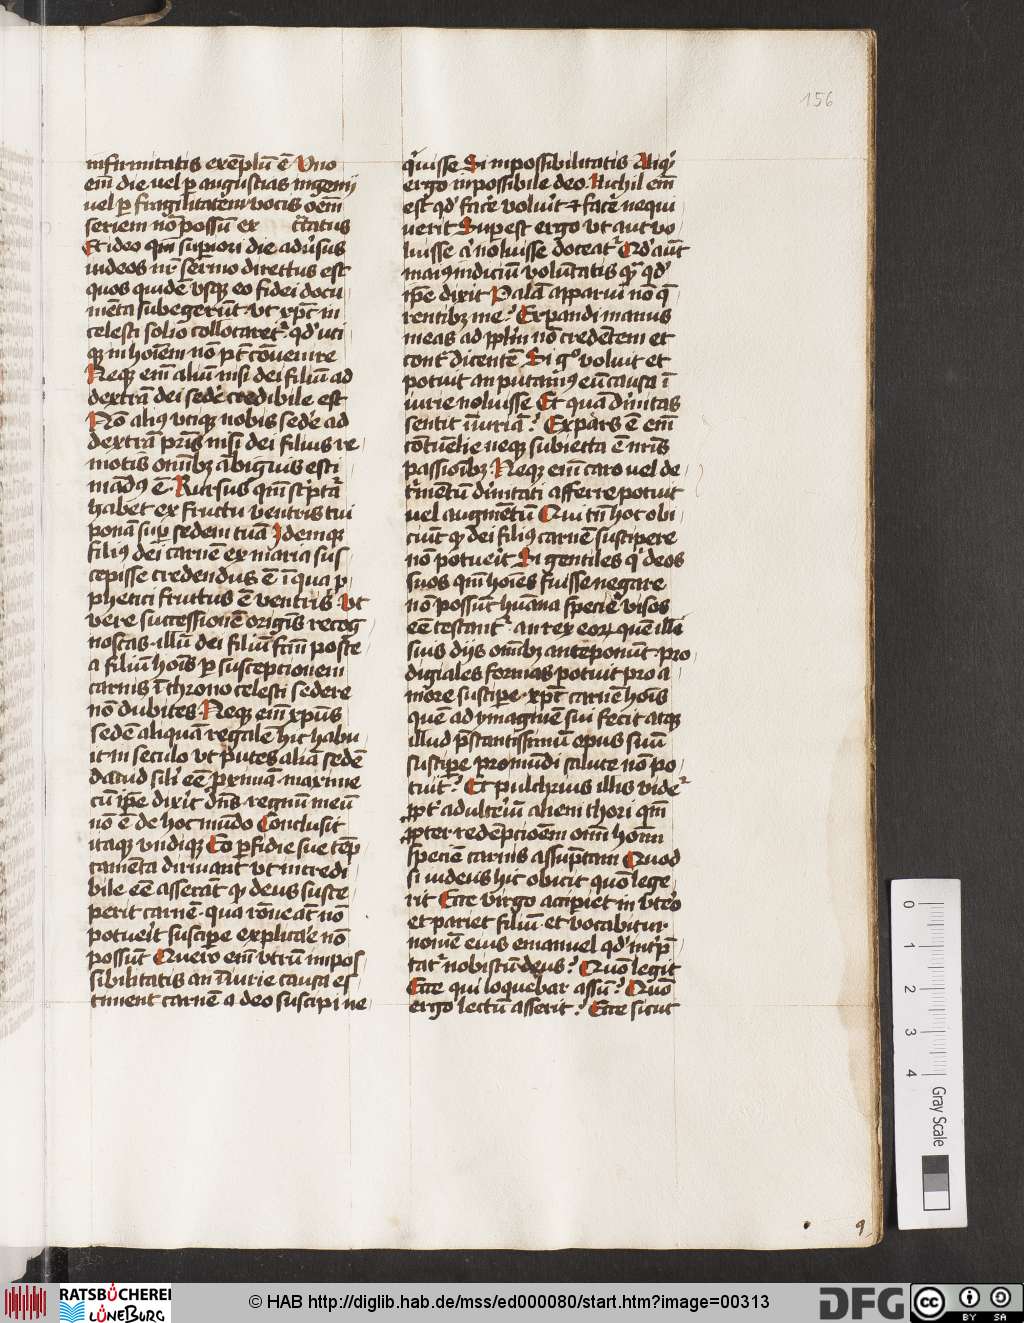 156
infirmitatis exēplū ē Uno
em̄ die vel ꝑ angustias ingenij
vel ꝑ fragilitatem vocis oēm
seriem nō possū ex
Et ideo die adūsus
iudeos nr̄ sermo directus est
quos quidē vsqꝫ eo fidei docu
mēta subegerūt vt xp̄c in
celesti solio collocaret᷑ qd' uti
qꝫ in hoiēm nō pōt cōuenire
Neqꝫ em̄ aliū nisi dei filiū ad
dextrā dei sedē credibile est
Nō aliꝰ vtiqꝫ nobis sedē ad
dextrā pr̄is nisi dei filius re
motis oīnibꝫ ābiguis esti
mādꝰ ē Rursus qm̄ sc̄ptū
habet ex fructu ventris tui
ponam suꝑ sedem tuā Idemqꝫ
filiꝰ dei carnē ex maria sus
cepisse credendus ē ī qua ꝓ
phetici fructus ē ventris Ut
vere successionē origīs recog
noscas illū dei filiū fcm̄ postē
a filiū hoīs ꝑ susceptionem
carnis ī throno celesti sedere
nō dubites Neqꝫ em̄ xp̄us
sedē aliquā regalē hic habu
it in seculo vt putes aliā sedē
datā sibi eē ꝑ maxime
cū ip̄e dixit dn̄s regnū meū
nō ē de hoc mūdo Conclusit
itaqꝫ vndiqꝫ Eo ꝑfidie sue tēp
tamēta diriuant vt incredi
bile eē asserāt qꝫ deus susce
perit carnē qua nō
potueīt suscipe explicāe nō
possūt Quero em̄ vtrū impos
sibilitatis an iniurie causa es
timent carnē a deo suscipi ne
q̄uisse Si inpossibilitatis Aliqꝫ
ergo inpossibile deo Nichil em̄
est qd' facē voluīt et facē nequi
uerit Suꝑest ergo vt aut vo
luisse aut noluisse doceat᷑ Qd' aūt
maiꝰ indiciū volūtatis quā qd'
ip̄e dixit Palā apparui nō q̄
rentibꝫ me Expandi manus
meas ad pplm̄ nō credētem et
cont᷑dicentē Si gͦ voluit et
potuit an putamꝰ eū causa ī
iurie noluisse Et quā diuinitas
sentit iniuriā Expars ē em̄
cōtumelie neqꝫ subiecta ē nr̄is
passionibꝫ Neqꝫ em̄ caro vel de
t'mentū diuinitati afferre potuit
vel augmētū Qui tn̄ hoc obi
ciūt qꝫ dei filiꝰ carnē suscipere
nō potueīt Si gentiles qꝫ deos
suos qm̄ hoīes fuisse negare
nō possūt huāna specie visos
eē testant᷑ an rex eoꝝ quē illi
suis dijs oīnibꝫ anteponūt pro
digiales formas potuit pro a
more suscipe xp̄c carnē hoīs
quē ad ymaginē sui fecit atqꝫ
illud p̄stantissimū opus suū
suscipe pro mūdi salute nō po
tuit Et pulchrius illis videt᷑
ꝓpt' adulteriū alieni thori qm̄
ꝓpter redēpcioēm oīm homī
speciē carnis assūptam Quod
si iudeus hic obicit quō lege
rit Ecce virgo accipiet in vtēo
et pariet filiū et vocabitur
nomē eius emanuel qd' int'p̄
tat᷑ nobiscū deus Quō legit
Ecce qui loquebar assū Quō
ergo lectū asserit Ecce sicut
0
1
2
3
4
Gray Scale
RATSBÜCHEREI
LÜNEBURG
© HAB http://diglib.hab.de/mss/ed000080/start.htm?image=00313
DFG
cc
BY SA